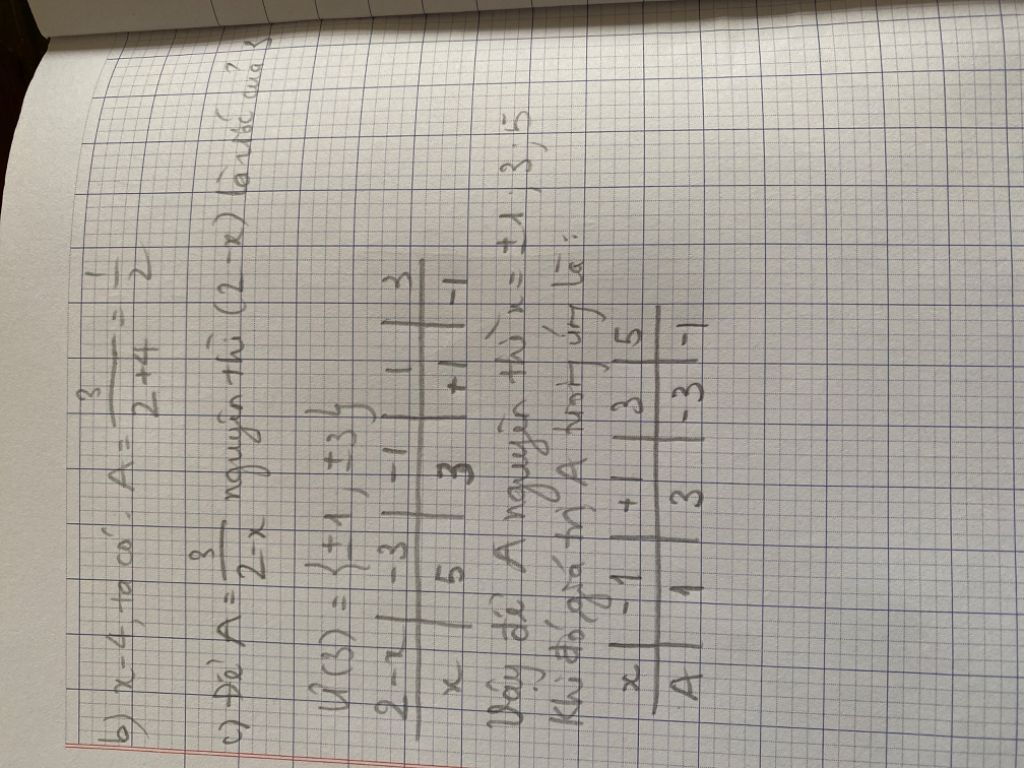 b) x-4, ta có. A = 3/(2+4) = 1/2
c) Để A = 3/(2-x) nguyên thì (2-x) là ước của 3
Ư(3) = {±1, ±3}
2-x | -3 | -1 | 1 | 3
x | 5 | 3 | +1 | -1
Vậy để A nguyên thì x = ±1; 3; 5
Khi đó giá trị A tương ứng là:
x | -1 | +1 | 3 | 5
A | 1 | 3 | -3 | -1